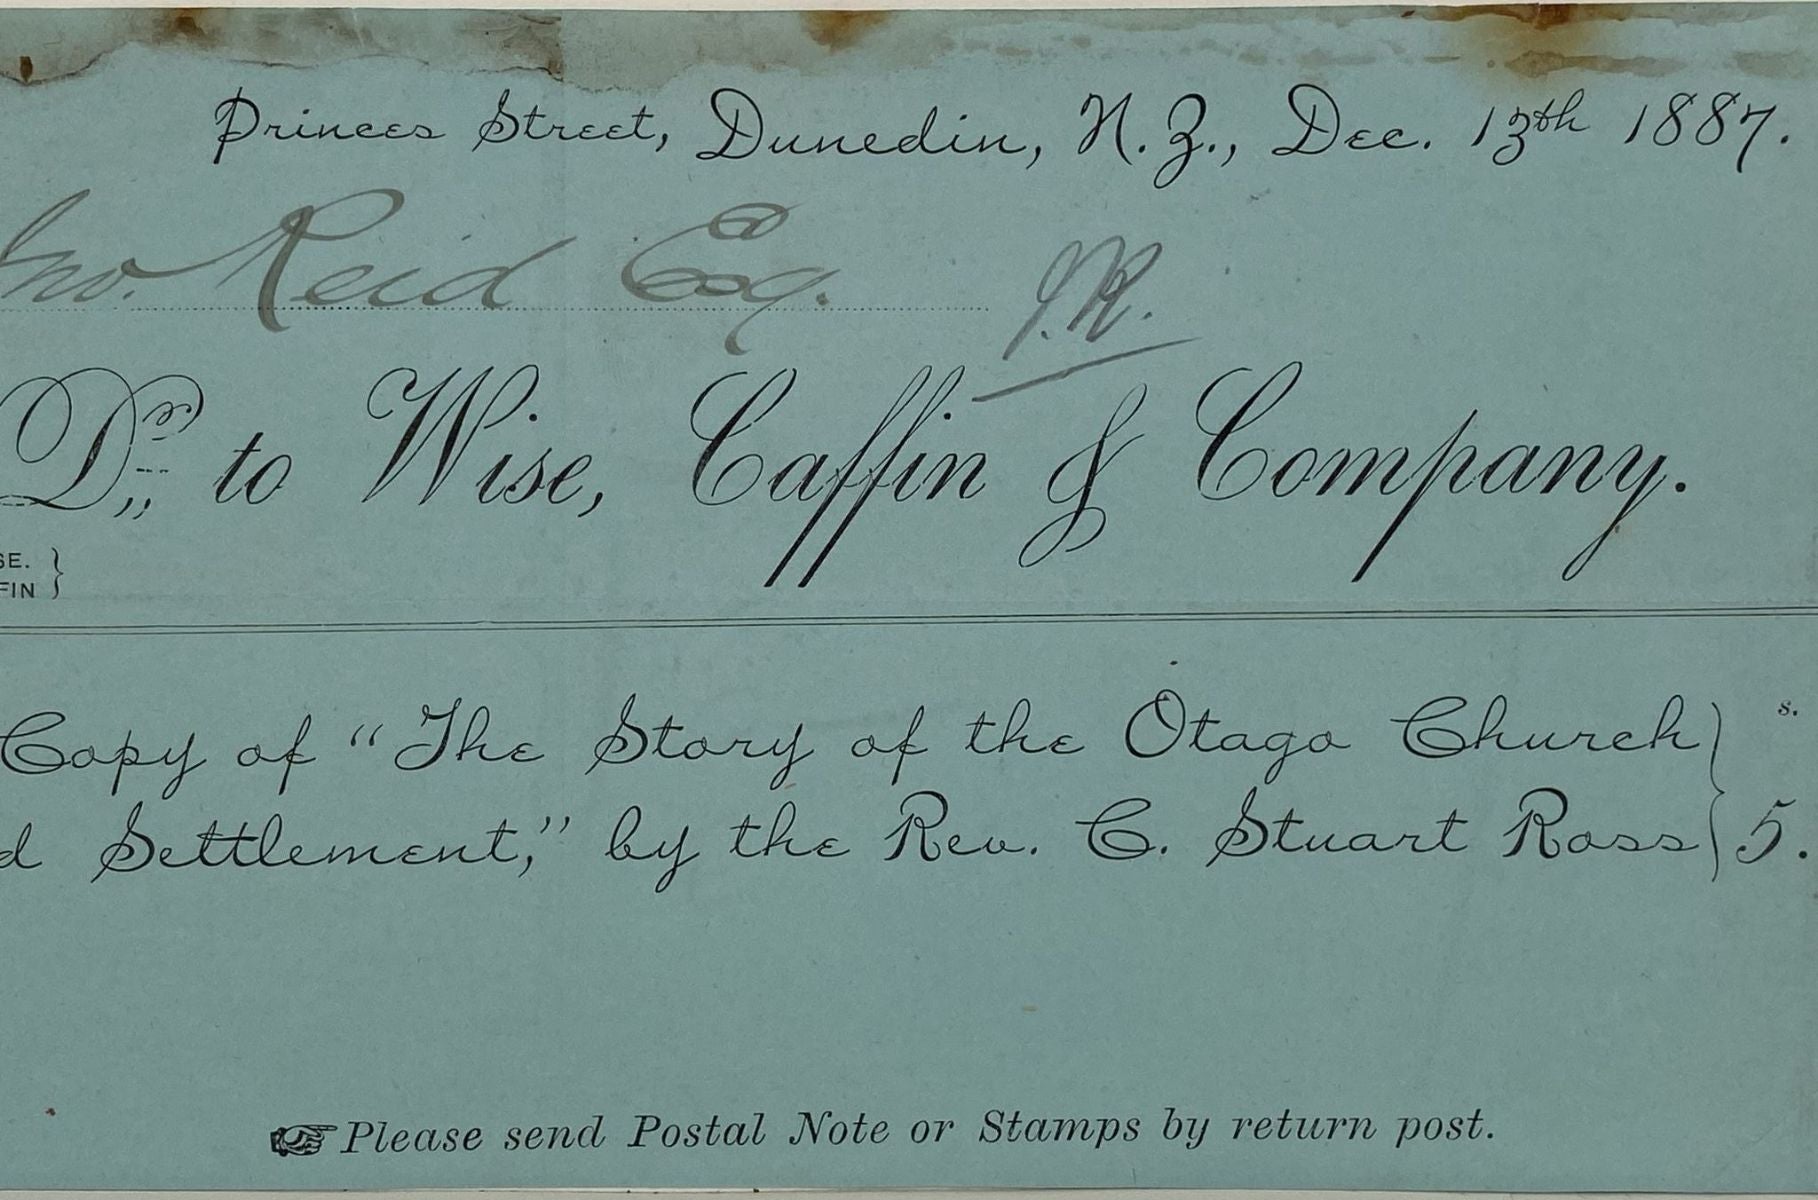 Princes Street, Dunedin, N. Z., Dec. 13th 1887.
Jno. Reid Esq. J.R.
Dr. to Wise, Caffin & Company.
SE.
FIN
Copy of "The Story of the Otago Church s.
d Settlement," by the Rev. C. Stuart Ross 5.
Please send Postal Note or Stamps by return post.